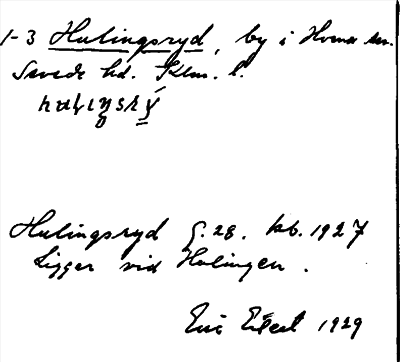 1-3 Hulingsryd, by i Hvena sn.
Sevede hd. Klm. l.
Hulingsryd G. 28. kb. 1927
Ligger vid Hulingen.
Eric Elfert 1929